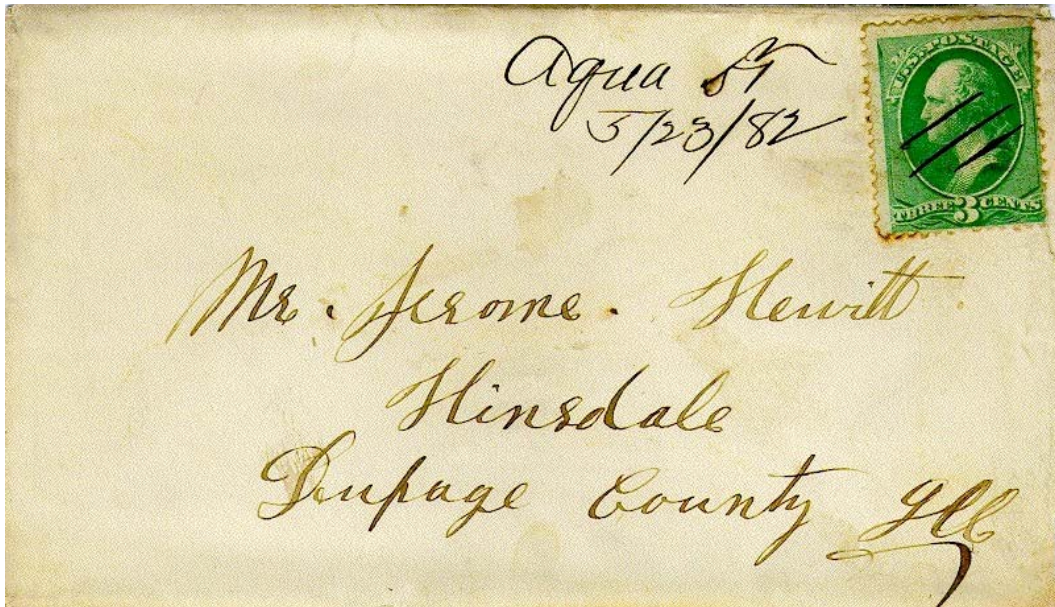 Aqua VT
5/23/82
U.S. POSTAGE
THREE 3 CENTS
Mr. Jerome. Hewitt
Hinsdale
Dupage County Ill